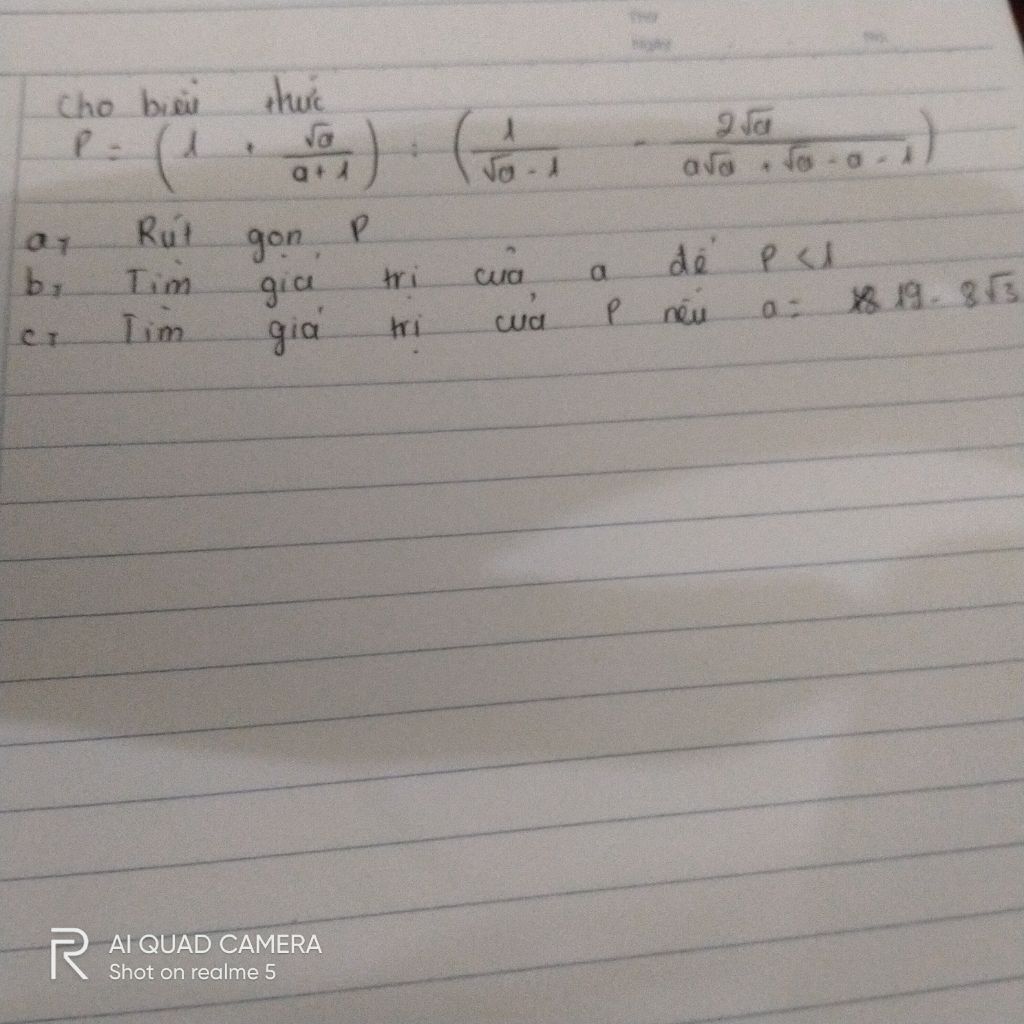 Cho biểu thức
P = (1 + √a / a + 1) : (1 / √a - 1 - 2√a / a√a + √a - a - 1)
a, Rút gọn P
b, Tìm giá trị của a để P < 1
c, Tìm giá trị của P nếu a = 19 - 8√3
AI QUAD CAMERA
Shot on realme 5